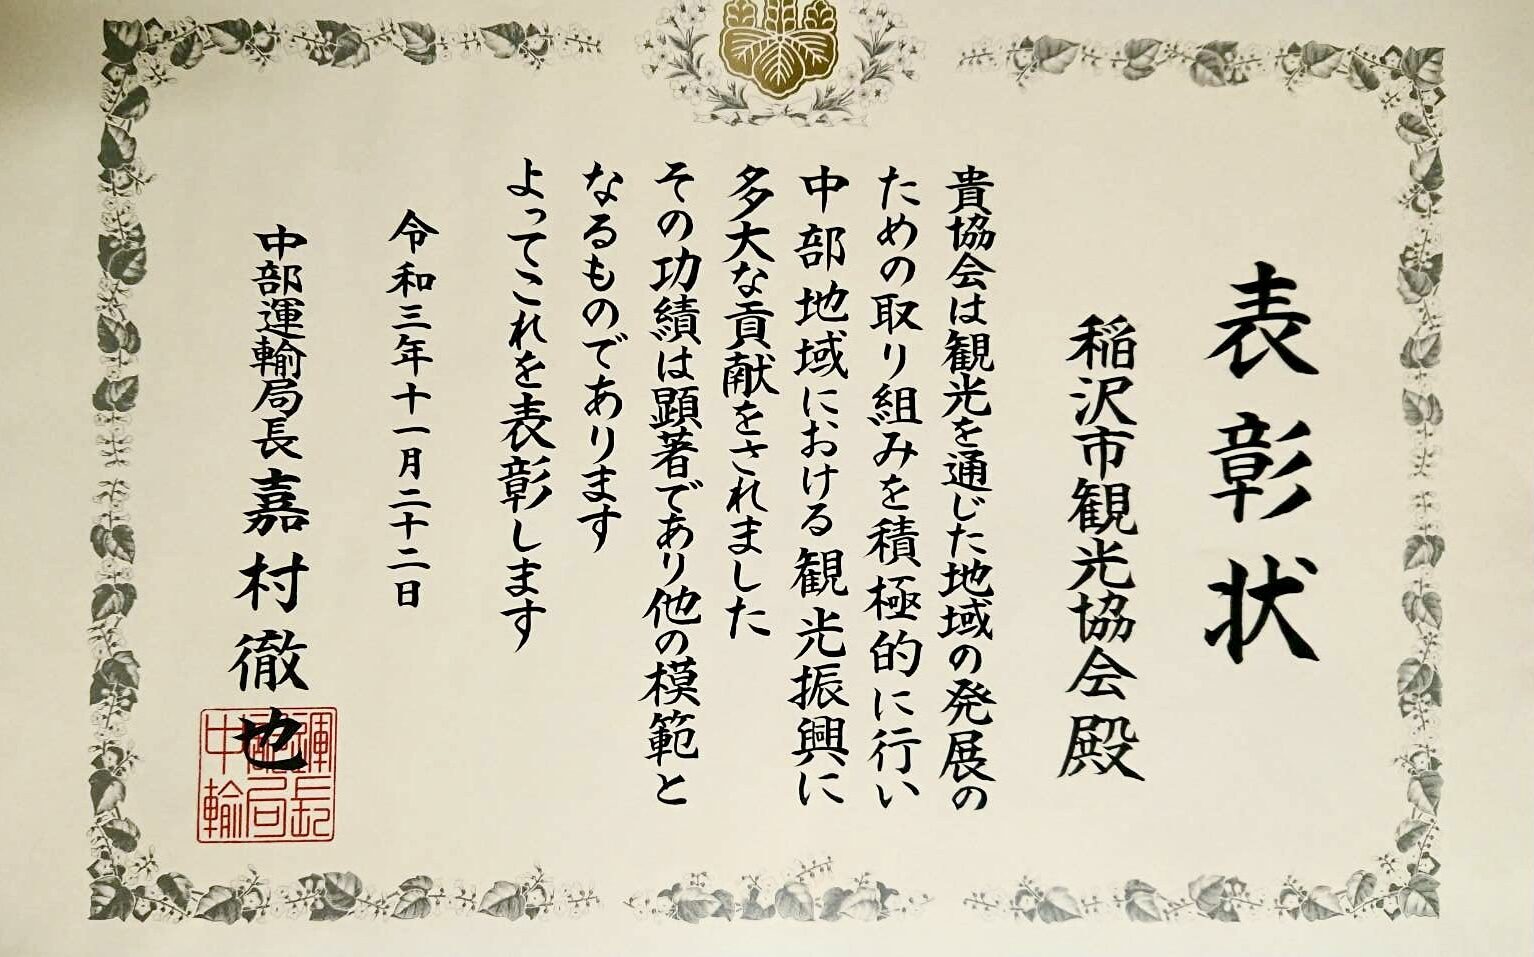 表彰状
稲沢市観光協会殿
貴協会は観光を通じた地域の発展の
ための取り組みを積極的に行い
中部地域における観光振興に
多大な貢献をされました
その功績は顕著であり他の模範と
なるものであります
よってこれを表彰します
令和三年十一月二十二日
中部運輸局長嘉村徹也